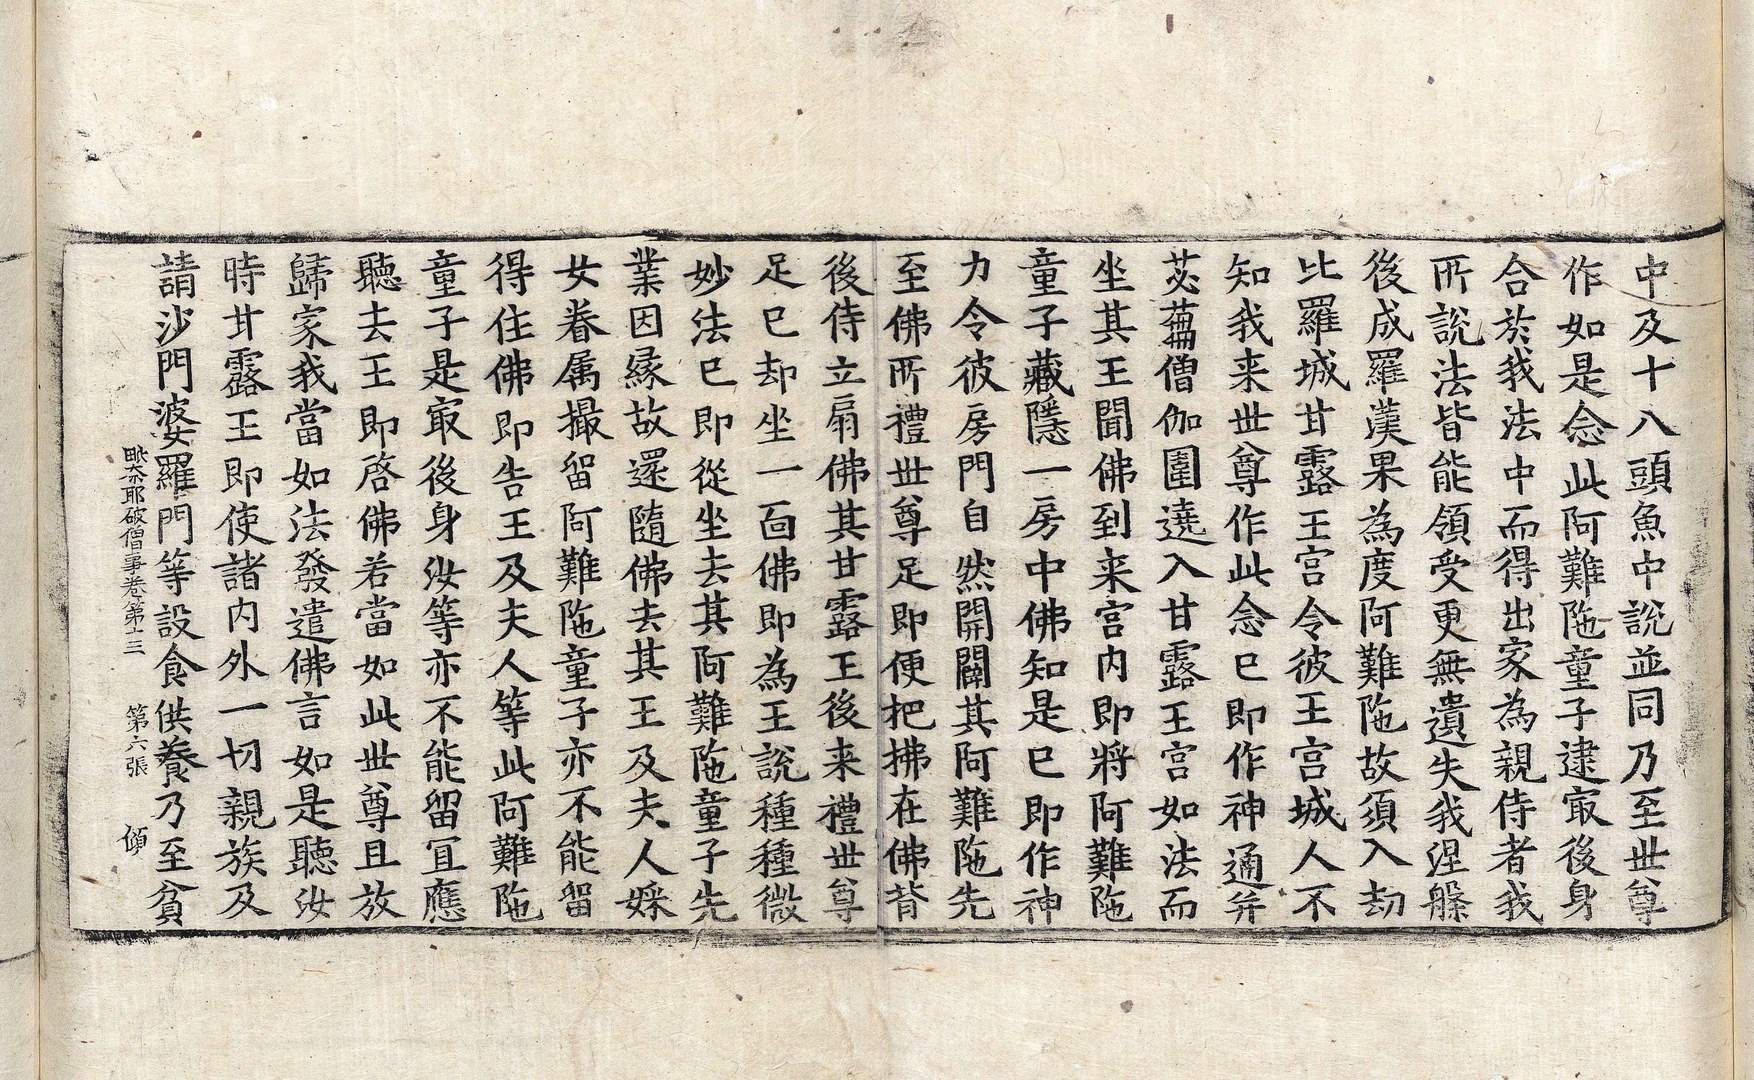 中及十八頭魚中說並同乃至世尊
作如是念此阿難陁童子逮㝡後身
合於我法中而得出家為親侍者我
所說法皆能領受更無遺失我涅槃
後成羅漢果為度阿難陁故須入劫
比羅城甘露王宮令彼王宮城人不
知我来世尊作此念已即作神通并
苾蒭僧伽圍遶入甘露王宮如法而
坐其王聞佛到来宮內即將阿難陁
童子藏隱一房中佛知是已即作神
力令彼房門自然開闢其阿難陁先
至佛所禮世尊足即便把拂在佛背
後侍立扇佛其甘露王後来禮世尊
足已却坐一面佛即為王說種種微
妙法已即從坐去其阿難陁童子先
業因緣故還隨佛去其王及夫人婇
女眷属撮留阿難陁童子亦不能留
得住佛即告王及夫人等此阿難陁
童子是㝡後身汝等亦不能留宜應
聽去王即啓佛若當如此世尊且放
歸家我當如法發遣佛言如是聽汝
時甘露王即使諸內外一切親族及
請沙門婆羅門等設食供養乃至貧
毗奈耶破僧事卷第十三　第六張　傾